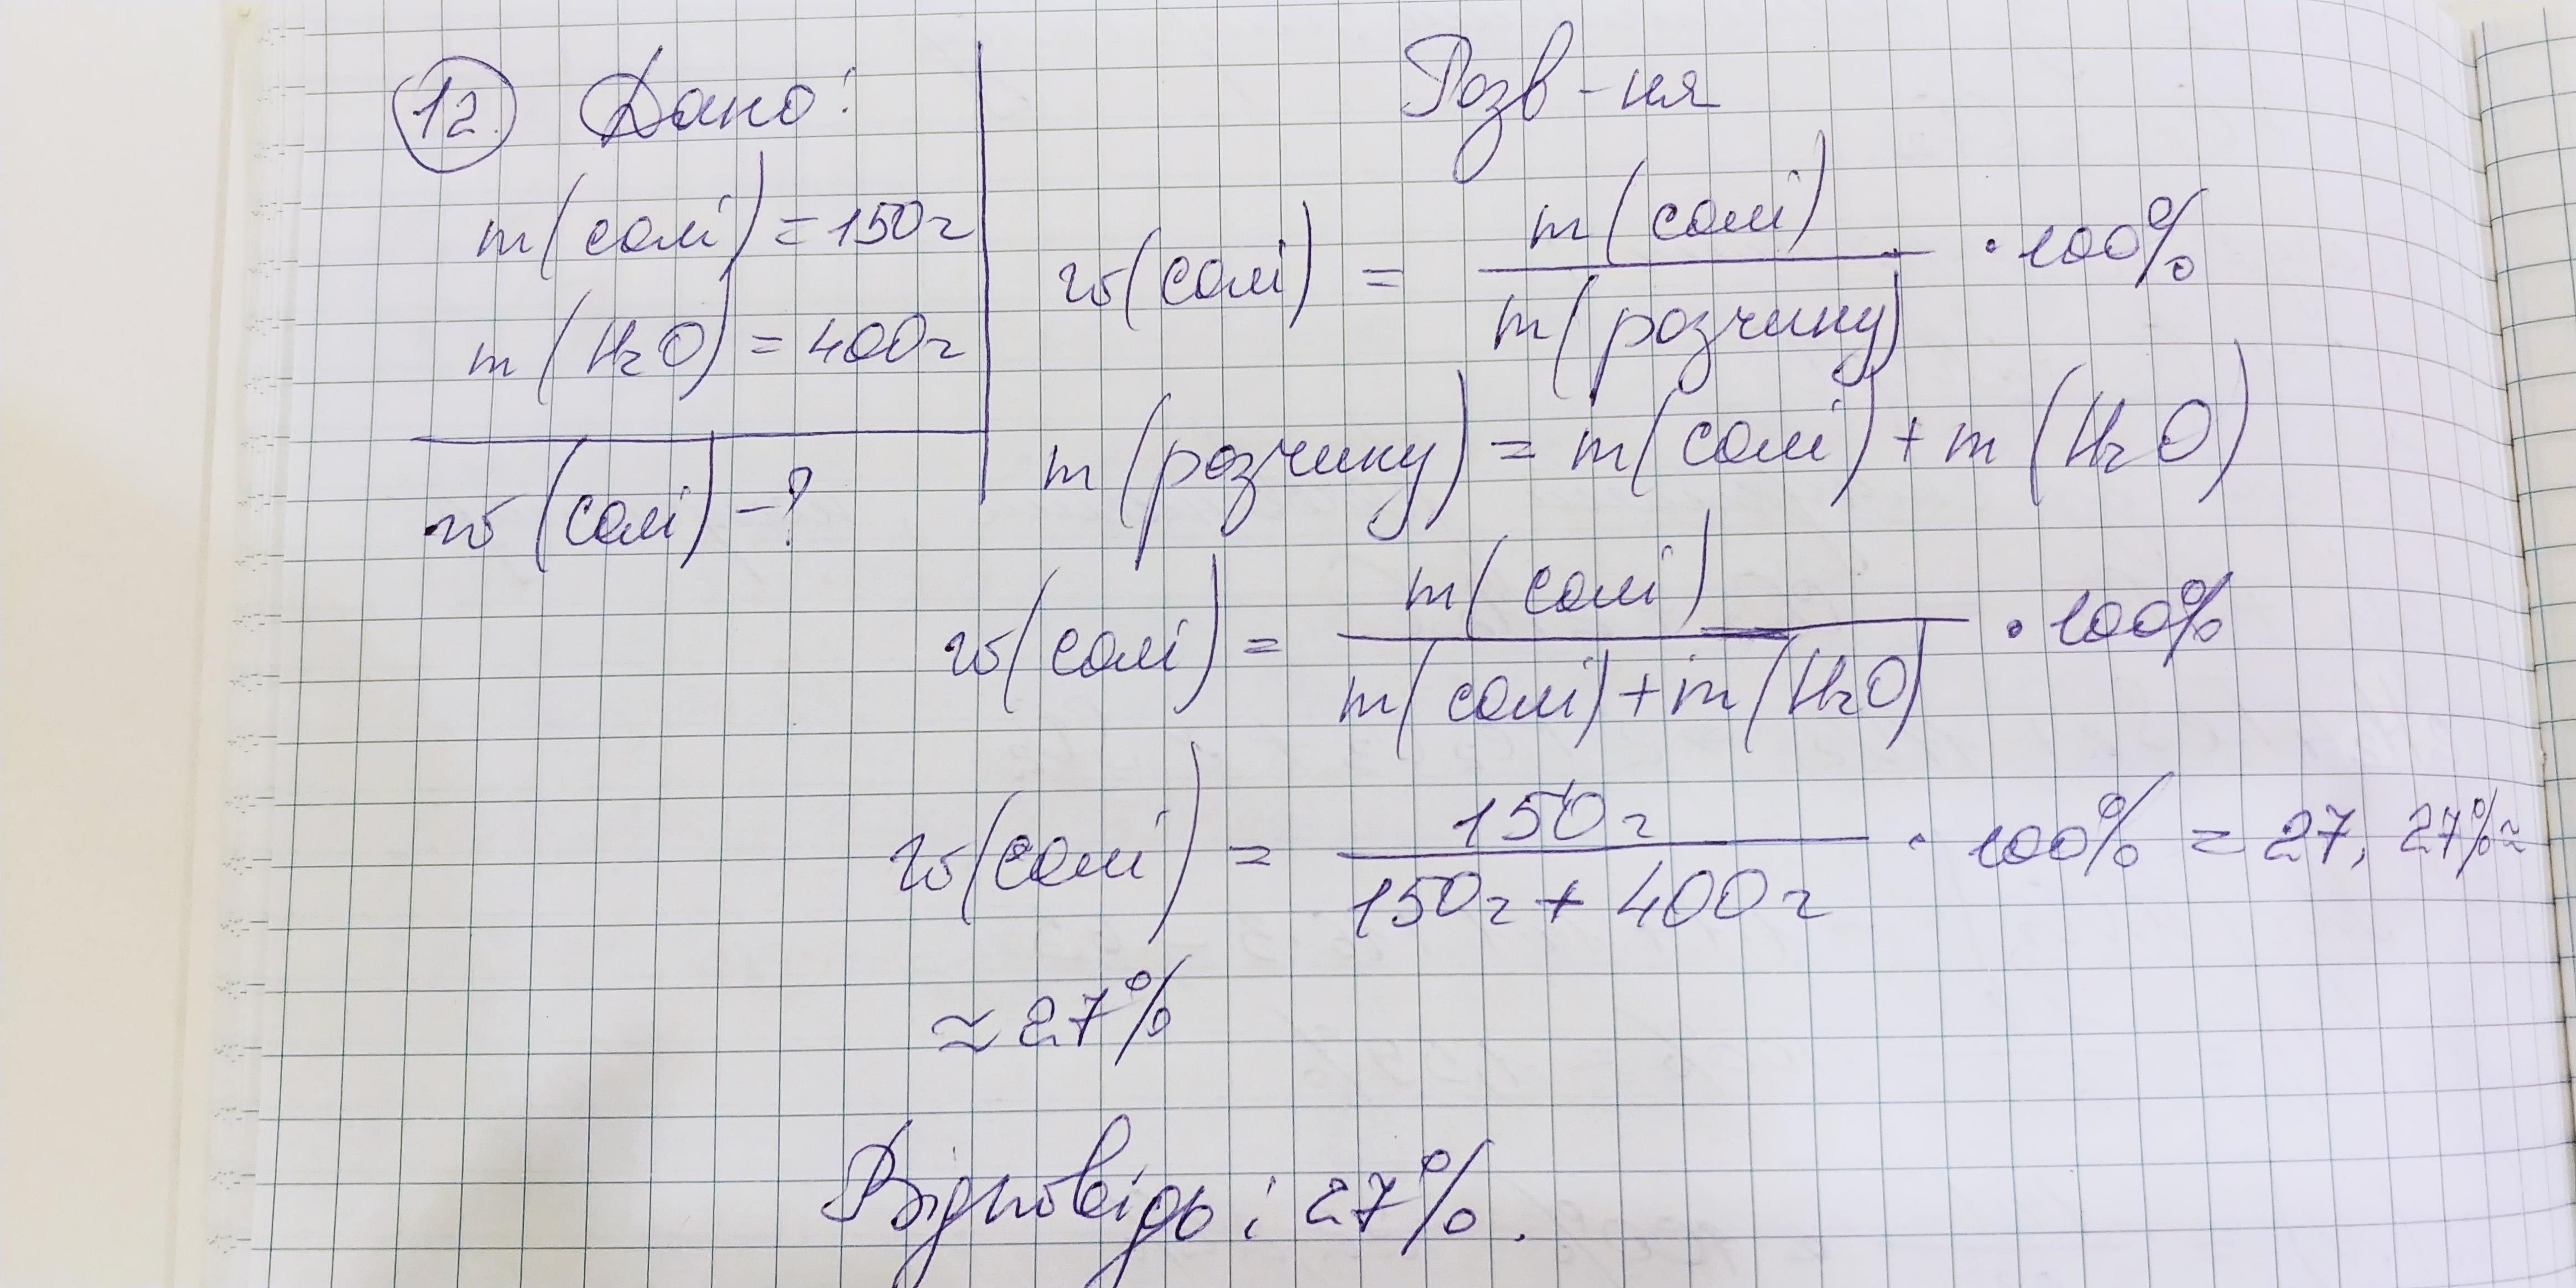 12. Дано:
m(солі) = 150г
m(H₂O) = 400г
w(солі) - ?
Розв-ня
w(солі) = m(солі) / m(розчину) · 100%
m(розчину) = m(солі) + m(H₂O)
w(солі) = m(солі) / m(солі) + m(H₂O) · 100%
w(солі) = 150г / 150г + 400г · 100% = 27,27% ≈
≈ 27%
Відповідь: 27%.